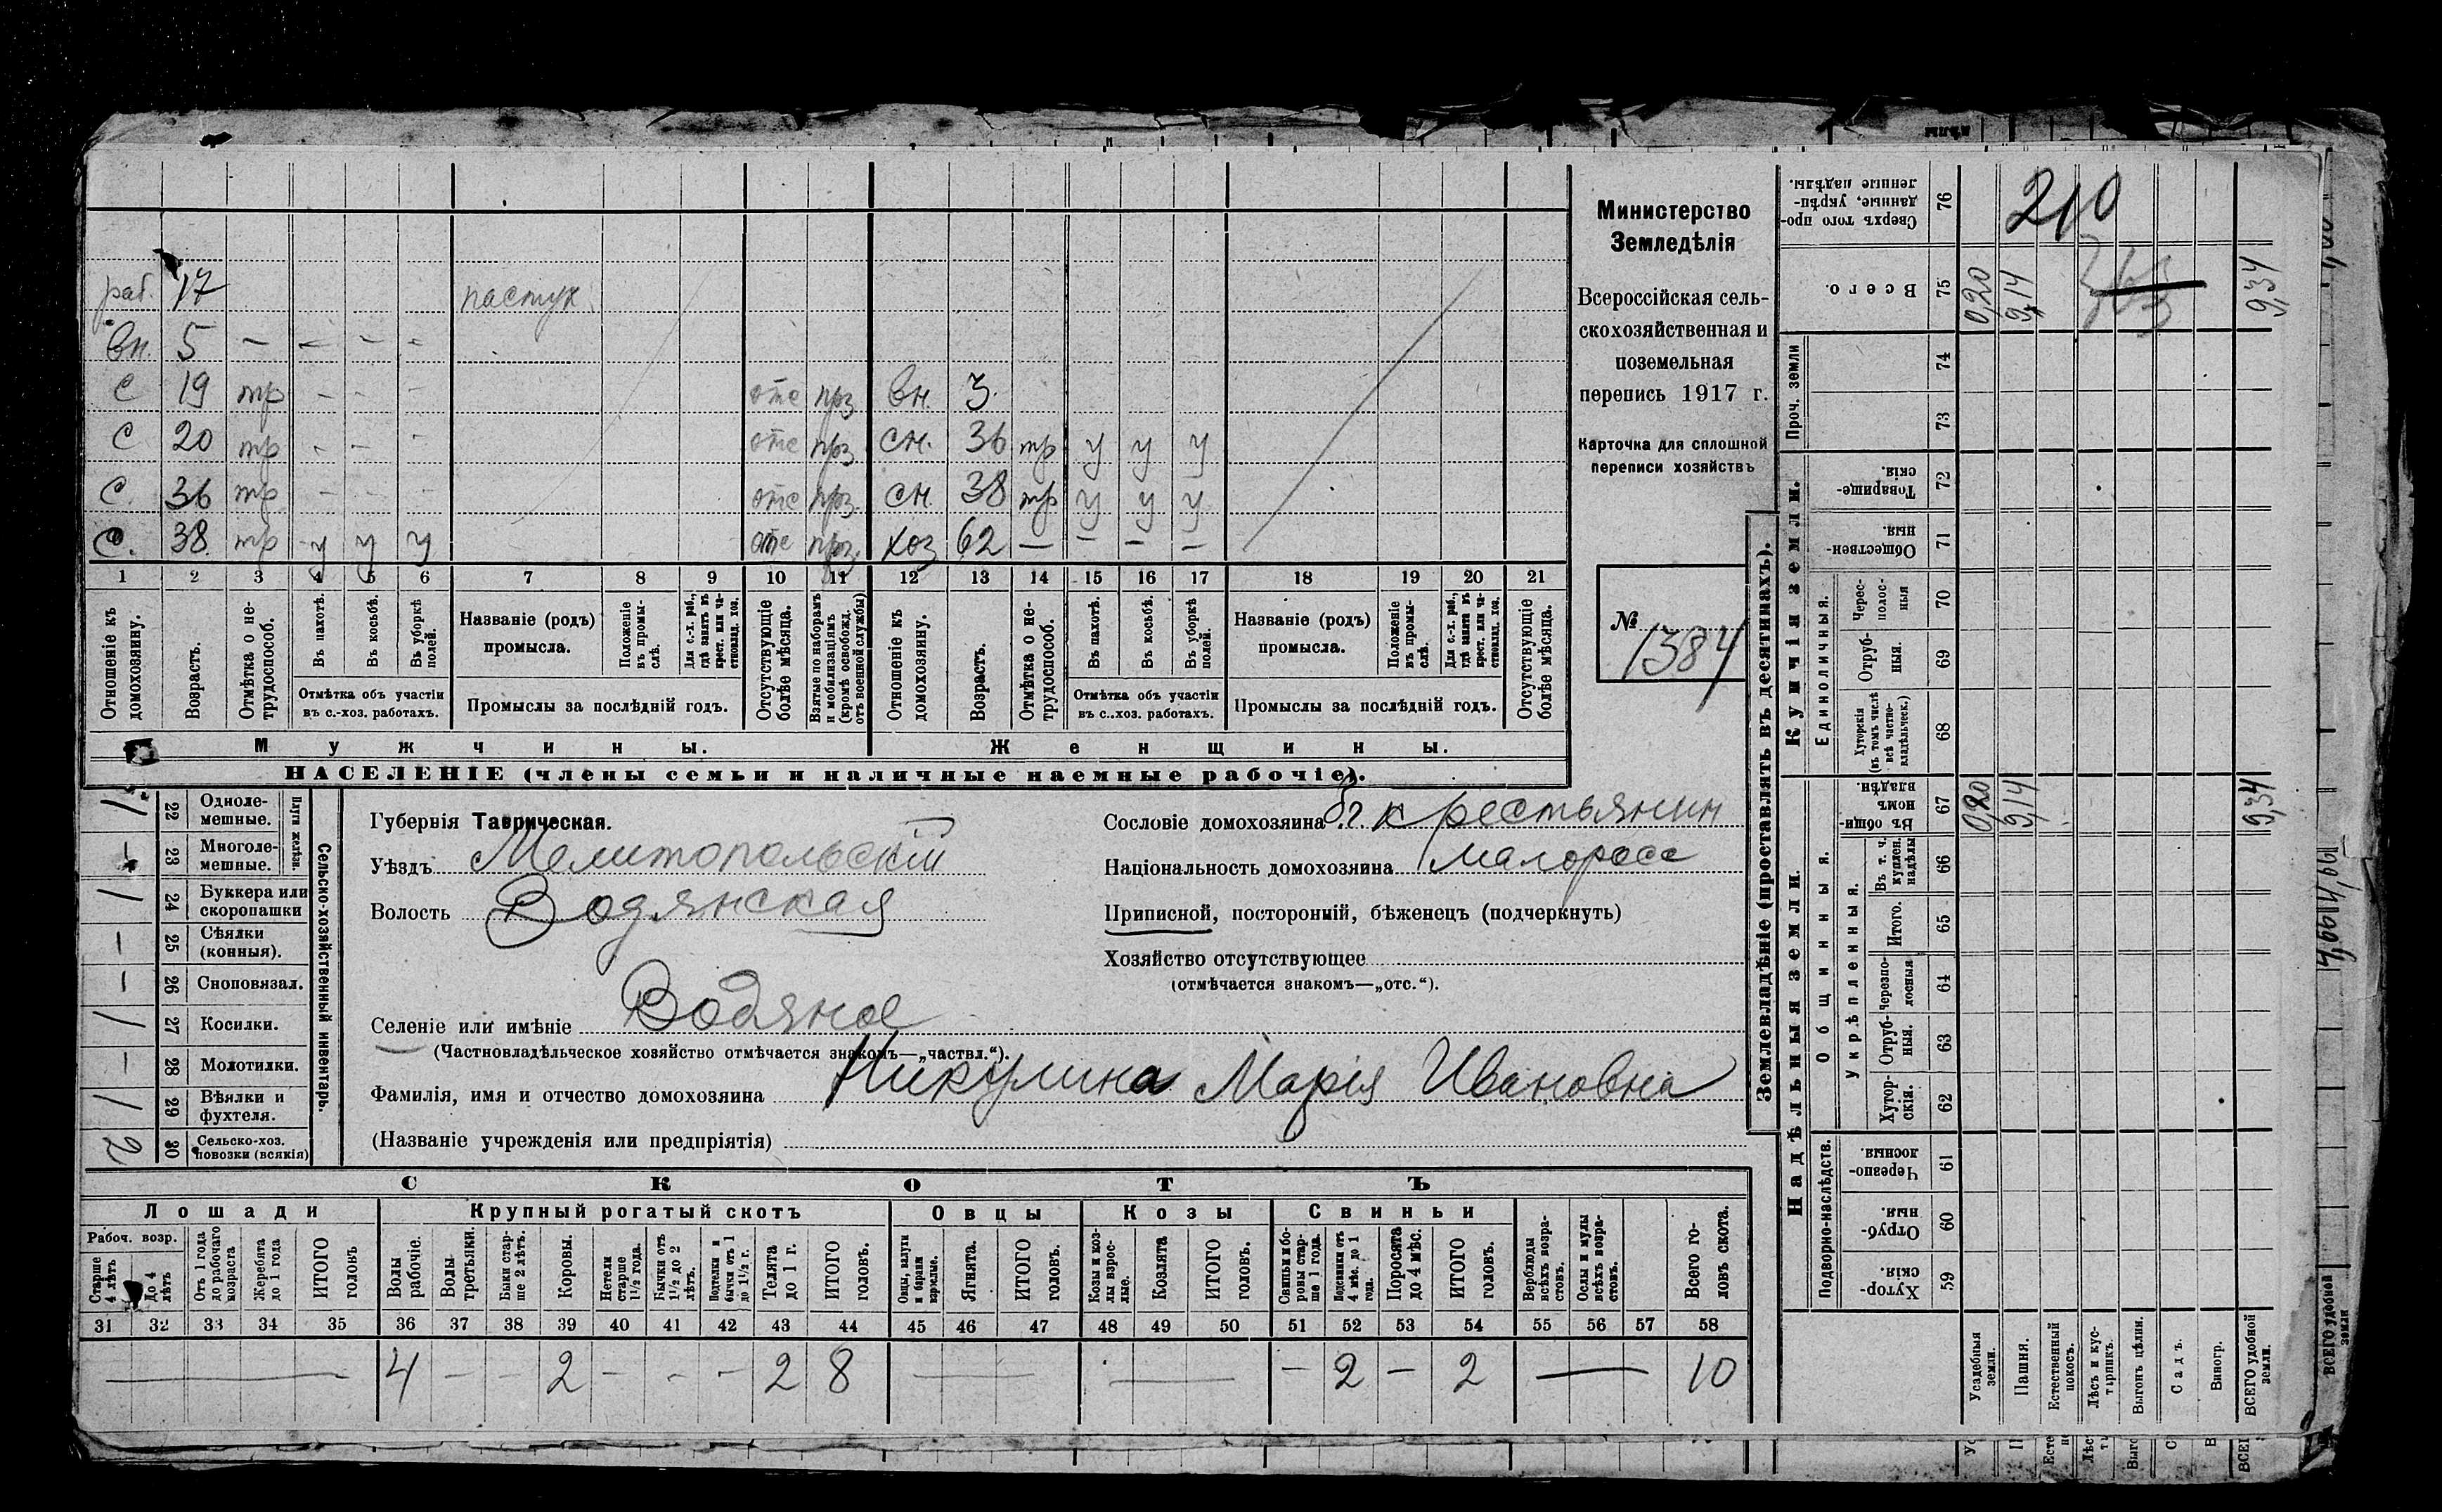 раб. 17 пастух
вн. 5 — — — —
с 19 тр — — — отс прз вн. 3
с 20 тр — — — отс прз сн. 36 тр у у у
с. 36 тр — — — отс прз. сн 38 тр у у у
с. 38 тр у у у отс прз. хоз 62 — — — —
1 2 3 4 5 6 7 8 9 10 11 12 13 14 15 16 17 18 19 20 21
Отношеніе къ домохозяину.
Возрастъ.
Отмѣтка о не-трудоспособ.
Въ пахотѣ.
Въ косьбѣ.
Въ уборкѣ полей.
Отмѣтка объ участіи
въ с.-хоз. работахъ.
Названіе (родъ)
промысла.
Положеніе въ промы-слѣ.
Для с.-х. раб., гдѣ занятъ въ крест. или ча-стновлад. хоз.
Промыслы за послѣдній годъ.
Отсутствующіе болѣе мѣсяца.
Взятые по наборамъ и мобилизаціямъ (кромѣ освобожд. отъ военной службы)
Отношеніе къ домохозяину.
Возрастъ.
Отмѣтка о не-трудоспособ.
Въ пахотѣ.
Въ косьбѣ.
Въ уборкѣ полей.
Отмѣтка объ участіи
въ с..хоз. работахъ.
Названіе (родъ)
промысла.
Положеніе въ промы-слѣ.
Для с.-х. раб., гдѣ занята въ крест. или ча-стновлад. хоз.
Промыслы за послѣдній годъ.
Отсутствующіе болѣе мѣсяца.
Мужчины. Женщины.
НАСЕЛЕНІЕ (члены семьи и наличные наемные рабочіе).
Министерство
Земледѣлія
Всероссійская сель-
скохозяйственная и
поземельная
перепись 1917 г.
Карточка для сплошной
переписи хозяйствъ
№
1384
Сельско-хозяйственный инвентарь.
Плуги желѣзн.
1 22 Одноле-мешные.
— 23 Многоле-мешные.
1 24 Буккера или скоропашки
— 25 Сѣялки (конныя).
— 26 Сноповязал.
1 27 Косилки.
— 28 Молотилки.
1 29 Вѣялки и фухтеля.
2 30 Сельско-хоз. повозки (всякія)
Губернія Таврическая.
Уѣздъ Мелитопольскій
Волость Водянская
Селеніе или имѣніе Водяное
(Частновладѣльческое хозяйство отмѣчается знакомъ—„частвл.“).
Фамилія, имя и отчество домохозяина Никулина Марія Ивановна
(Названіе учрежденія или предпріятія)
Сословіе домохозяина крестьянин
Національность домохозяина малоросс
Приписной, посторонній, бѣженецъ (подчеркнуть)
Хозяйство отсутствующее
(отмѣчается знакомъ—„отс.“).
СКОТЪ
Лошади Крупный рогатый скотъ Овцы Козы Свиньи
Рабоч. возр.
Старше 4 лѣтъ
До 4 лѣтъ
Отъ 1 года до рабочаго возраста
Жеребята до 1 года
ИТОГО головъ
Волы рабочіе.
Волы третьяки.
Быки стар-ше 2 лѣтъ.
Коровы.
Нетели старше 1½ года.
Бычки отъ 1½ до 2 лѣтъ.
Подтелки и бычки отъ 1 до 1½ г.
Телята до 1 г.
ИТОГО головъ.
Овцы, валухи и бараны взрослые.
Ягнята.
ИТОГО головъ.
Козы и коз-лы взрос-лые.
Козлята
ИТОГО головъ.
Свиньи и бо-ровы стар-ше 1 года.
Подсвинки отъ 4 мѣс. до 1 года.
Поросята до 4 мѣс.
ИТОГО головъ.
Верблюды всѣхъ возра-стовъ.
Ослы и мулы всѣхъ возра-стовъ.
Всего го-ловъ скота.
31 32 33 34 35 36 37 38 39 40 41 42 43 44 45 46 47 48 49 50 51 52 53 54 55 56 57 58
— 4 — — 2 — — — 2 8 — — — 2 — 2 — 10
Землевладѣніе (проставлять въ десятинахъ).
Надѣльныя земли. Купчія земли.
Подворно-наслѣдств.
Общинныя.
Укрѣпленныя.
Единоличныя.
Проч. земли
Сверхъ того про-данные, укрѣп-ленные надѣлы. 76 210
Всего. 75 0,20 9,14 9,34
74
73
Товарище-скія. 72
Обществен-ныя. 71
Черес-полос-ныя 70
Отруб-ныя. 69
Хуторскія (въ томъ числѣ всѣ частно-владѣльческ.) 68
Въ общин-номъ владѣн. 67 0,20 9,14 9,34
Въ т. ч. куплен. надѣлы 66
Итого. 65
Черезпо-лосныя 64
Отруб-ныя. 63
Хутор-скія. 62
Черезпо-лосныя 61
Отруб-ныя. 60
Хутор-скія. 59
Усадебныя земли.
Пашня.
Естественный покосъ.
Лѣсъ и кус-тарникъ.
Выгонъ цѣлин.
Садъ.
Виногр.
ВСЕГО удобной земли.
ВСЕГО удобной земли